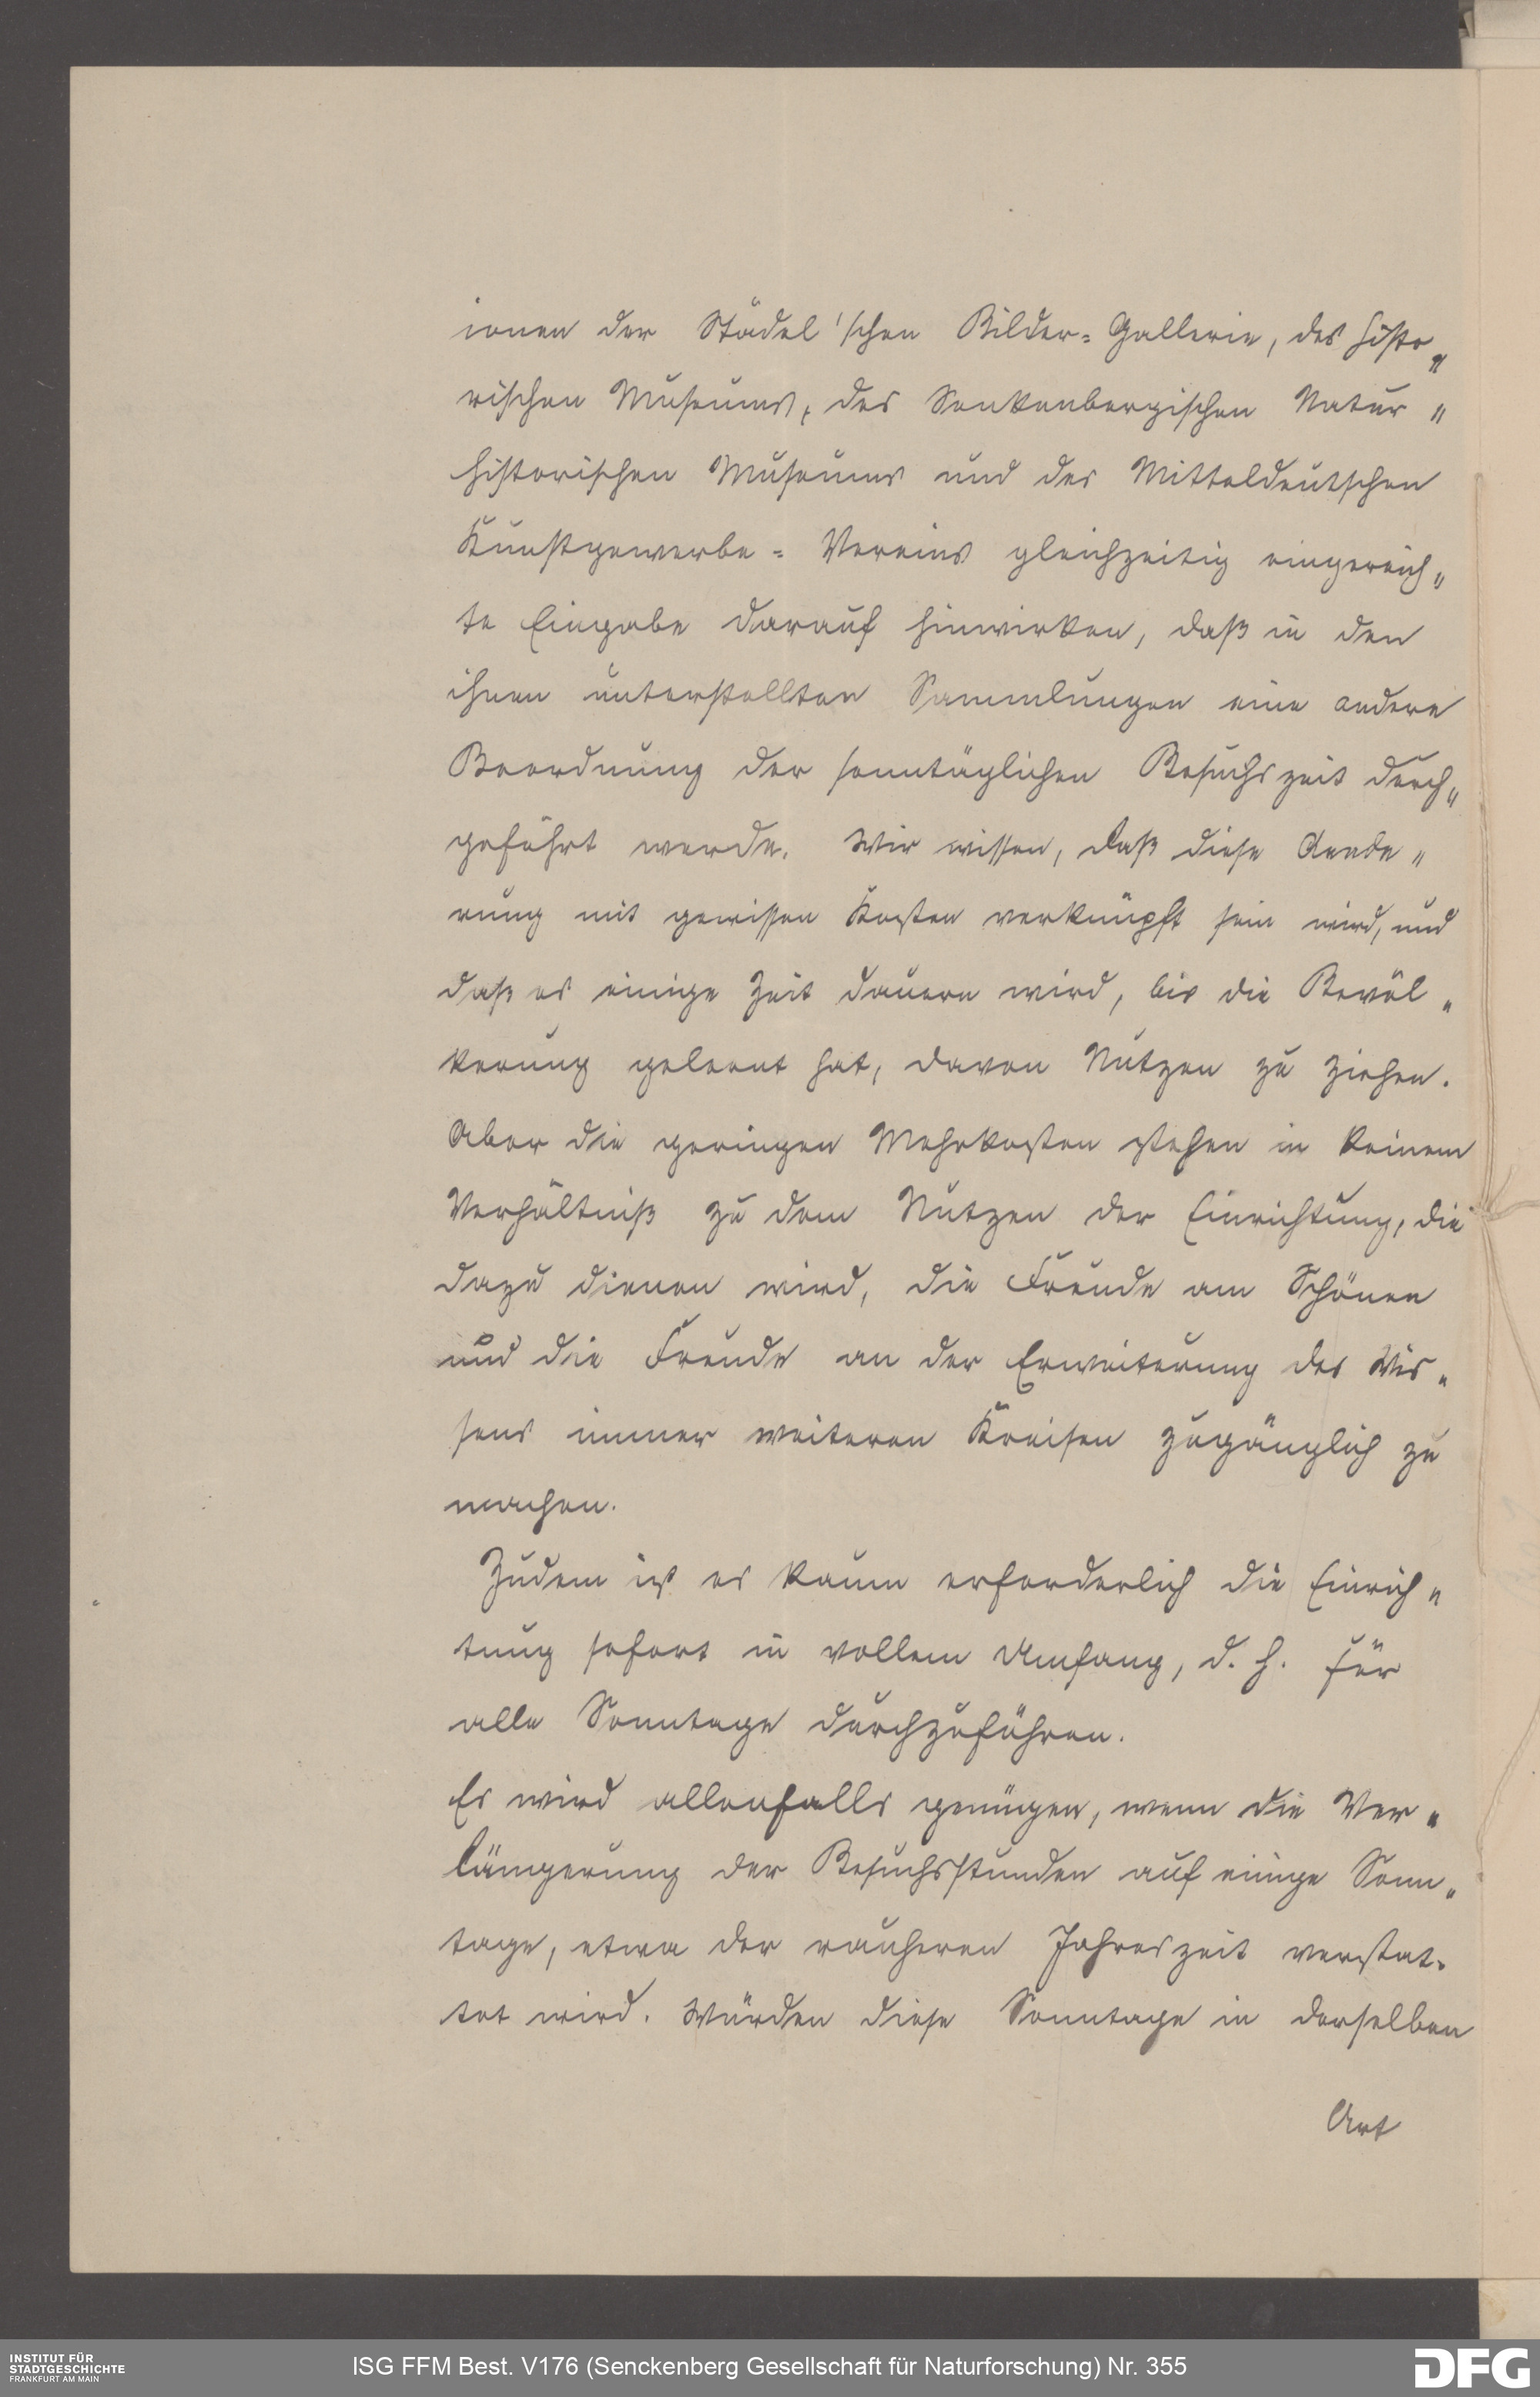 ionen der Städel'schen Bilder=Gallerie, des histo„
rischen Museums, des Senkenbergischen Natur„
historischen Museums und des Mitteldeutschen
Kunstgewerbe=Vereins gleichzeitig eingereich„
te Eingabe darauf hinwirken, daß in den
ihnen unterstellten Sammlungen eine andere
Beordnung der sonntäglichen Besuchszeit durch„
geführt werde. Wir wissen, daß diese Aende„
rung mit gewissen Kosten verknüpft sein wird, und
daß es einige Zeit dauern wird, bis die Bevöl„
kerung gelernt hat, davon Nutzen zu ziehen.
Aber die geringen Mehrkosten stehen in keinem
Verhältniß zu dem Nutzen der Einrichtung, die
dazu dienen wird, die Freude am Schönen
und die Freude an der Erweiterung des Wis„
sens immer weiteren Kreisen zugänglich zu
machen.
Zudem ist es kaum erforderlich die Einrich„
tung sofort in vollem Umfang, d. h. für
alle Sonntage durchzuführen.
Es wird allenfalls genügen, wenn die Ver„
längerung der Besuchsstunden auf einige Sonn„
tage, etwa der rauheren Jahreszeit verstat„
tet wird. Würden diese Sonntage in derselben
Art
INSTITUT FÜR
STADTGESCHICHTE
FRANKFURT AM MAIN
ISG FFM Best. V176 (Senckenberg Gesellschaft für Naturforschung) Nr. 355
DFG